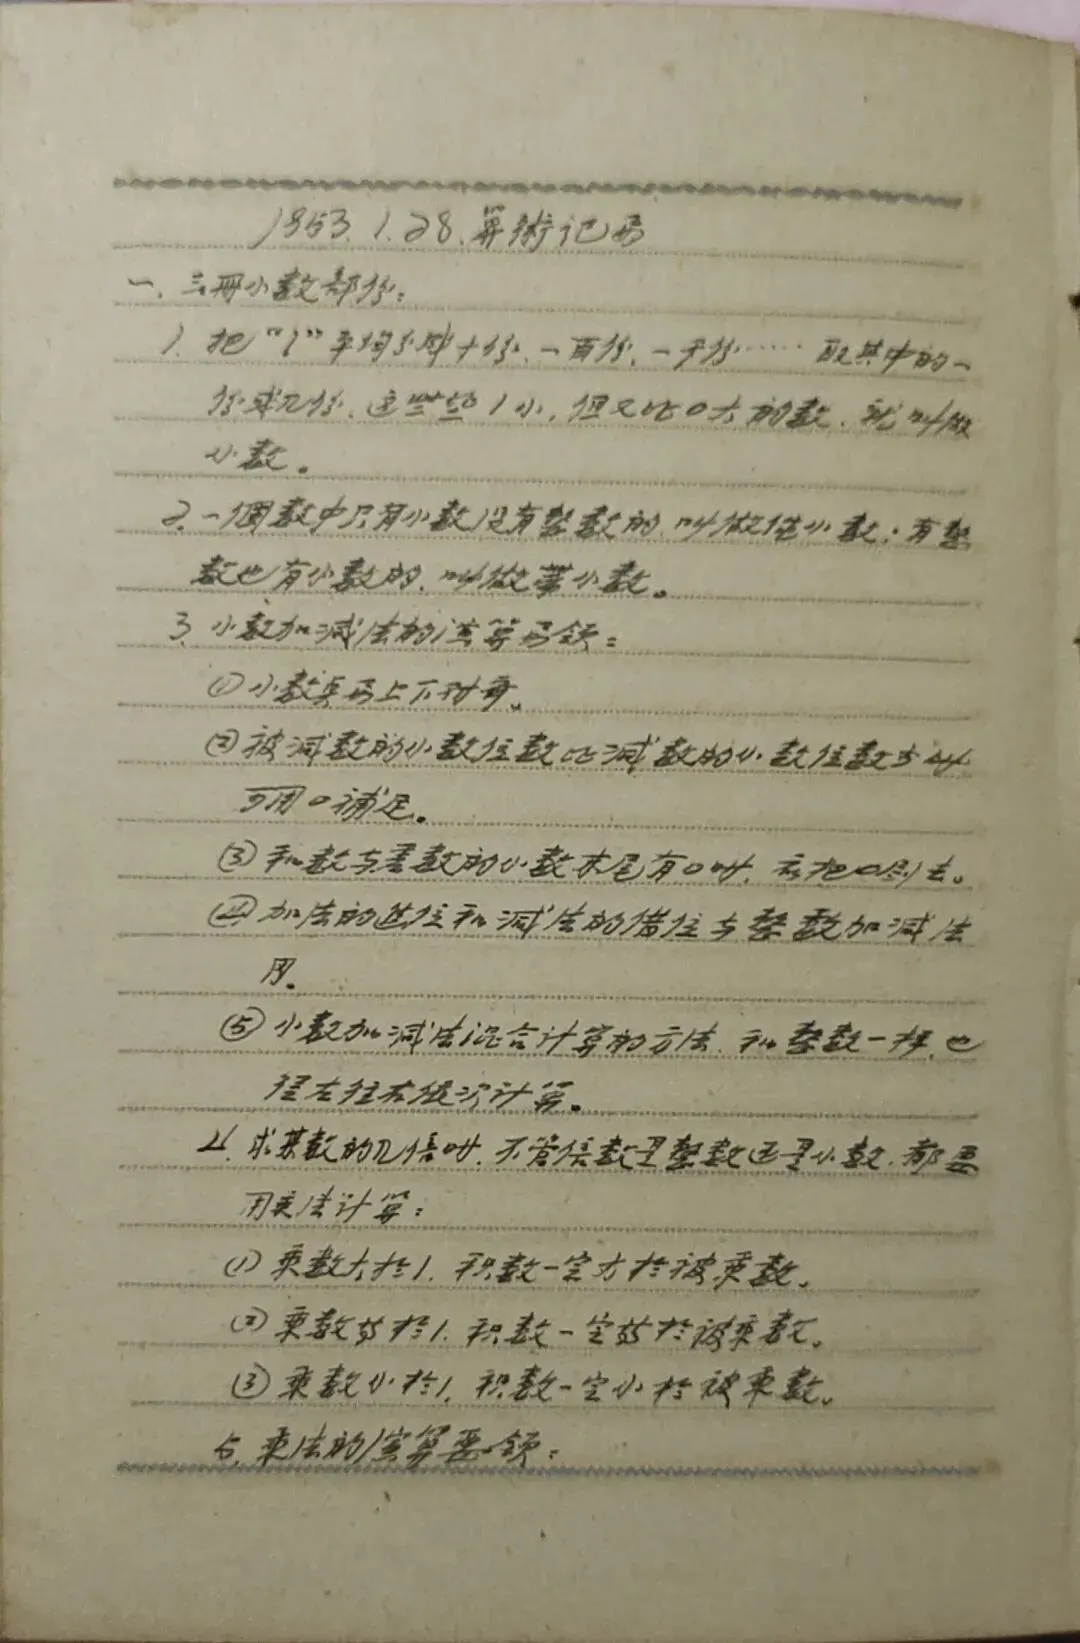 1953.1.28.算術记录
一、三册小数部份：
1. 把“1”平均分成十份、一百份、一千份…… 取其中的一
份或几份、这些比1小、但又比0大的数、就叫做
小数。
2. 一個数中只有小数没有整数的、叫做纯小数；有整
数也有小数的、叫做带小数。
3. 小数加减法的演算要领：
①小数点要上下对齐。
②被减数的小数位数比减数的小数位数少时
可用0補足。
③和数与差数的小数末尾有0时、要把0划去。
④加法的进位和减法的借位与整数加减法
同。
⑤小数加减法混合计算的方法、和整数一样、也
是左往右依次计算。
4. 求某数的几倍时、不管倍数是整数还是小数、都要
用乘法计算：
①乘数大於1、积数一定大於被乘数。
②乘数等於1、积数一定等於被乘数。
③乘数小於1、积数一定小於被乘数。
5. 乘法的演算要领：